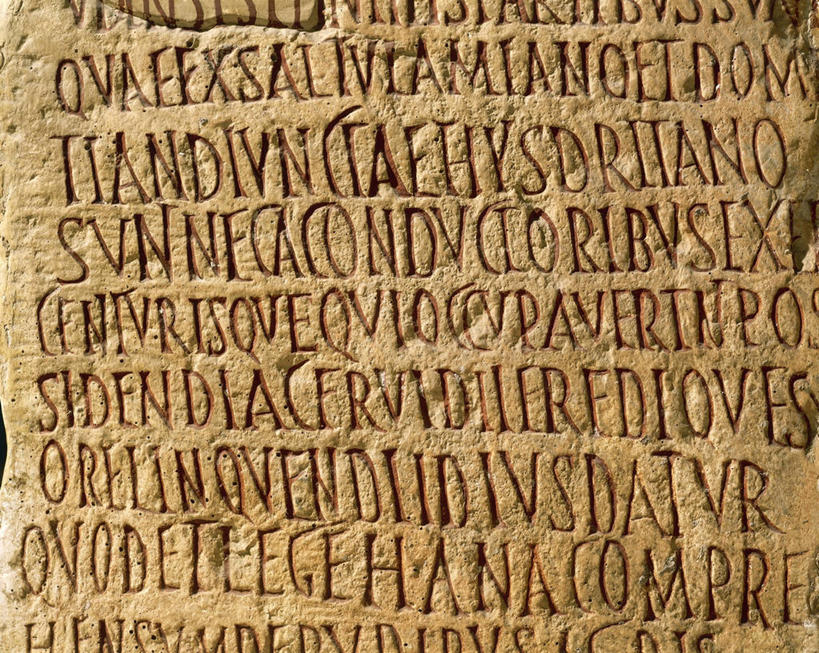 PARTIBVSSVN
QVAEEXSALTVLAMIANOETDOM
TIANDIVNCTAEHVSDRITANO
SVNNECACONDVCTORIBVSEXE
CENTVRISQVEQVIOCCVPAVERTNPOS
SIDENDIACFRVIDIIEREDIQVES
ORELINQVENDIIDIVSDATVR
QVODETLEGEHANACOMPRE
HENSVMDERVDIBVS